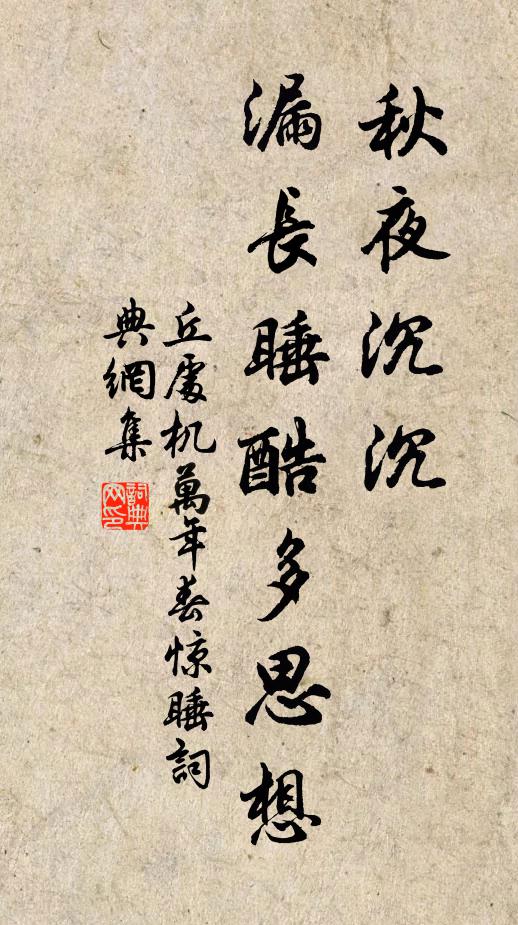 秋夜沉沉
漏長睡酷多思想
丘處机萬年春惊睡詞
典網集
詞典
网印